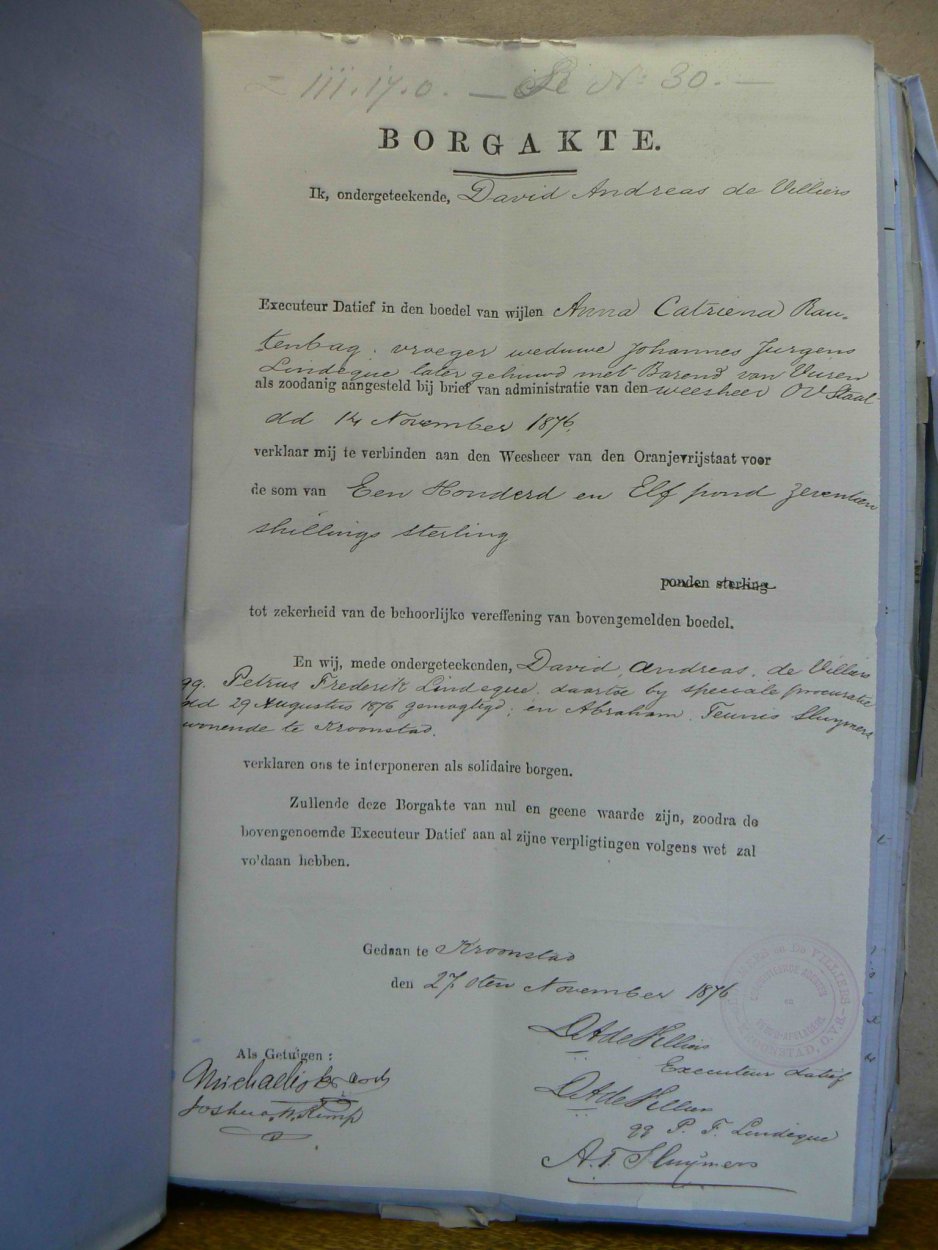 111.17.0. — No 30. —
BORGAKTE.
Ik, ondergeteekende, David Andreas de Villiers
Executeur Datief in den boedel van wijlen Anna Catriena Rau-
tenbag, vroeger weduwe Johannes Jurgens
Lindeque later gehuwd met Barend van Vuren
als zoodanig aangesteld bij brief van administratie van den weesheer OV Staat
dd 14 November 1876
verklaar mij te verbinden aan den Weesheer van den Oranjevrijstaat voor
de som van Een Honderd en Elf pond zeventien
shillings sterling
ponden sterling
tot zekerheid van de behoorlijke vereffening van bovengemelden boedel.
En wij, mede ondergeteekenden, David Andreas de Villiers
qq. Petrus Frederik Lindeque, daartoe by speciale procuratie
dd 29 Augustus 1876 gemagtigd; en Abraham Teunis Sluymers
wonende te Kroonstad.
verklaren ons te interponeren als solidaire borgen.
Zullende deze Borgakte van nul en geene waarde zijn, zoodra de
bovengenoemde Executeur Datief aan al zijne verpligtingen volgens wet zal
voldaan hebben.
Gedaan te Kroonstad
den 27sten November 1876
DE VILLIERS
en
KROONSTAD, O.V.S.
DA de Villiers
Executeur datief
Als Getuigen:
DA de Villiers
Joshua W. Kemp
qq P. F. Lindeque
A.T. Sluymers